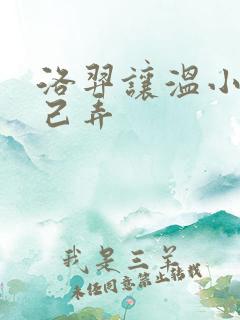 洛羿讓溫小
己弄
我是三羊
未经同意禁止转载